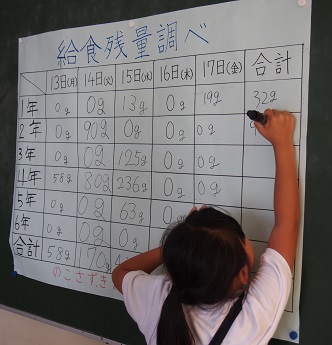 給食残量調べ
13日(月) 14日(火) 15日(水) 16日(木) 17日(金) 合計
1年 0g 0g 13g 0g 19g 32g
2年 0g 90g 0g 0g 0g
3年 0g 0g 125g 0g 0g
4年 58g 80g 236g 0g 0g
5年 0g 0g 63g
6年 0g 0g 0g
合計 58g 170g
のこさず